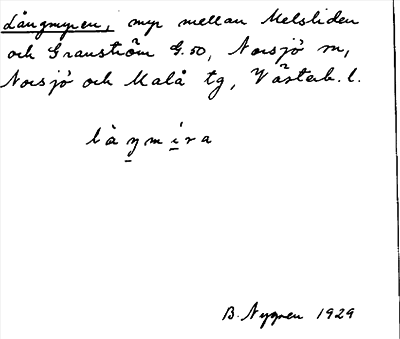 Långmyren, myr mellan Melsliden
och Granström G.50, Norsjö sn,
Norsjö och Malå tg, Västerb. l.
låŋmíra
B. Nygren 1929